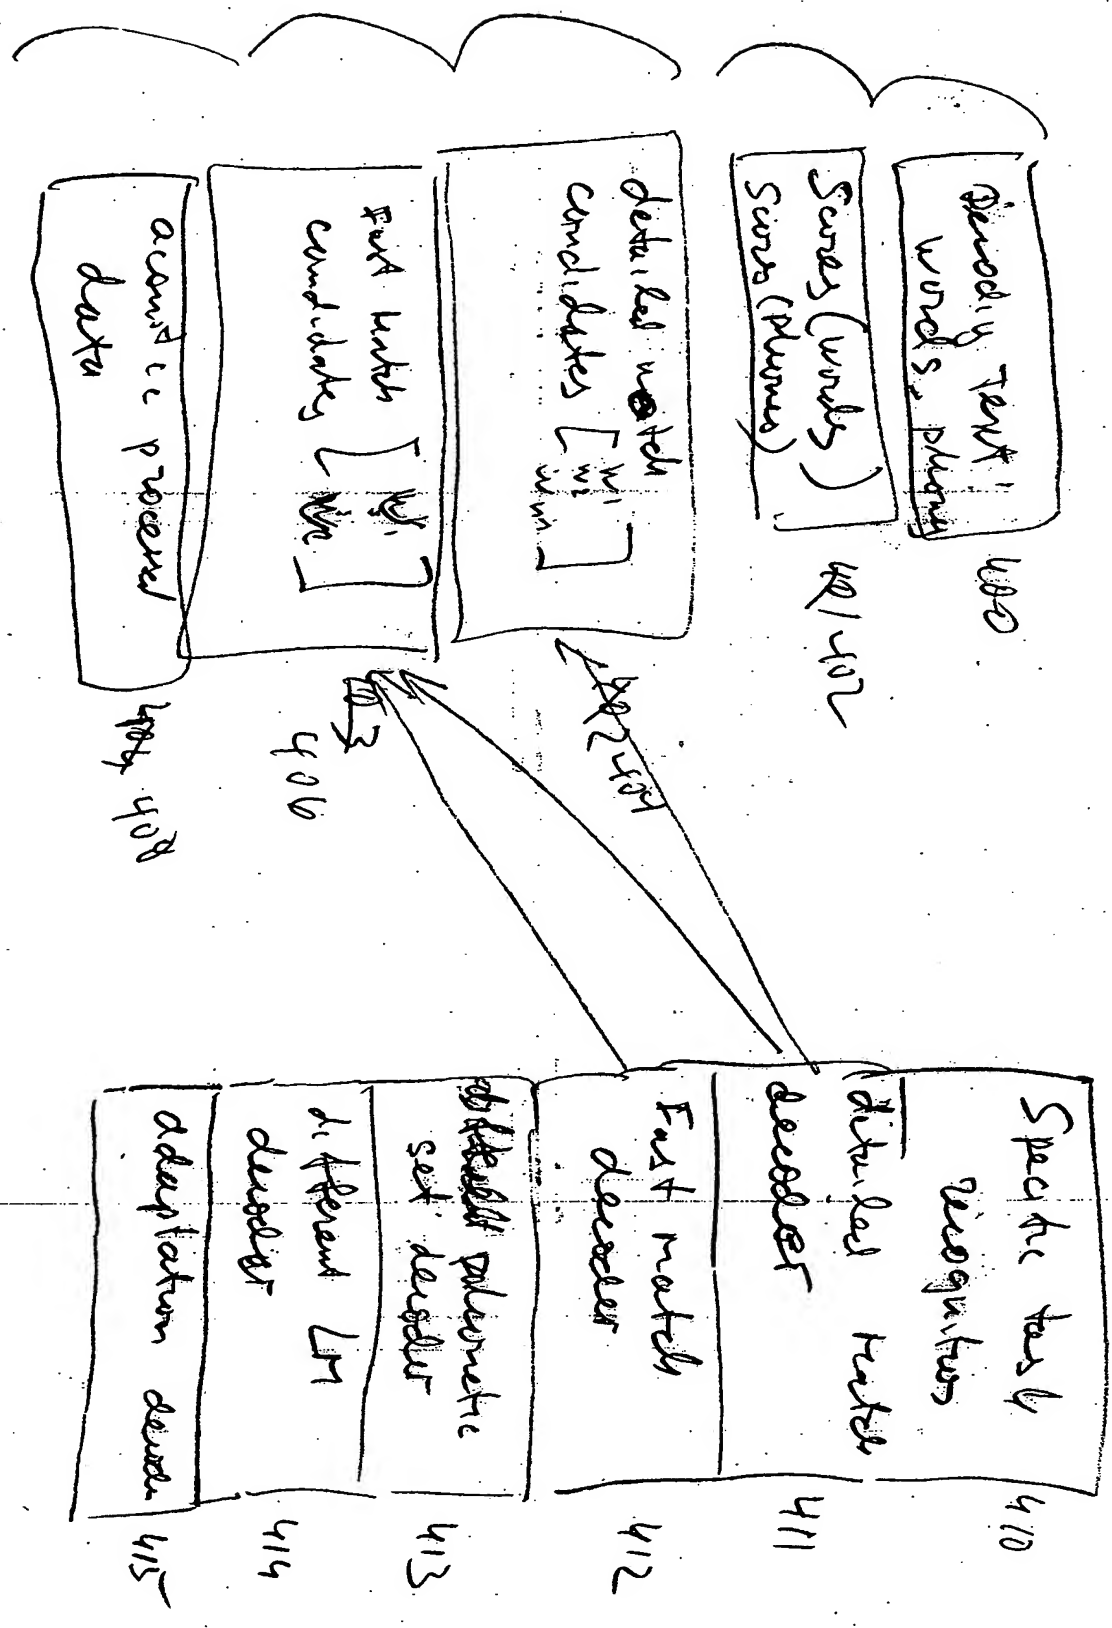 Text
words, phones
400
Scores (words)
Scores (phones)
401 402
detailed match
candidates [ W1
W2
404
Fast Match
candidates [
]
406
acoustic processed
data
408
Specific task
410
detailed Match
decoder
411
Fast match
decoder
412
phonetic
set decoder
413
different LM
decoder
414
adaptation
415